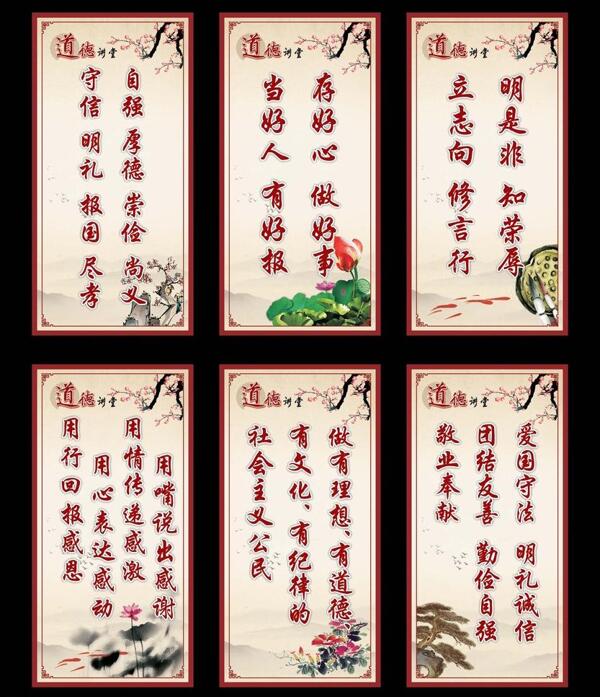 道德讲堂
自强 厚德 崇俭 尚义
守信 明礼 报国 尽孝
道德讲堂
存好心 做好事
当好人 有好报
道德讲堂
明是非 知荣辱
立志向 修言行
道德讲堂
用嘴说出感谢
用情传递感激
用心表达感动
用行回报感恩
道德讲堂
做有理想、有道德
有文化、有纪律的
社会主义公民
道德讲堂
爱国守法 明礼诚信
团结友善 勤俭自强
敬业奉献